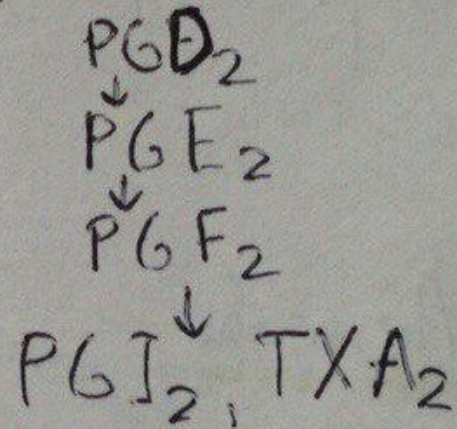 PGD₂
↓
PGE₂
↓
PGF₂
↓
PGI₂, TXA₂